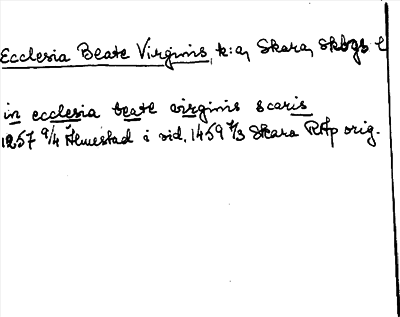 Ecclesia Beate Virginis, k:a, Skara, Skbgs l
in ecclesia beate virginis scaris
1257 9/4 Älmestad i vid. 1459 7/3 Skara RAp orig.